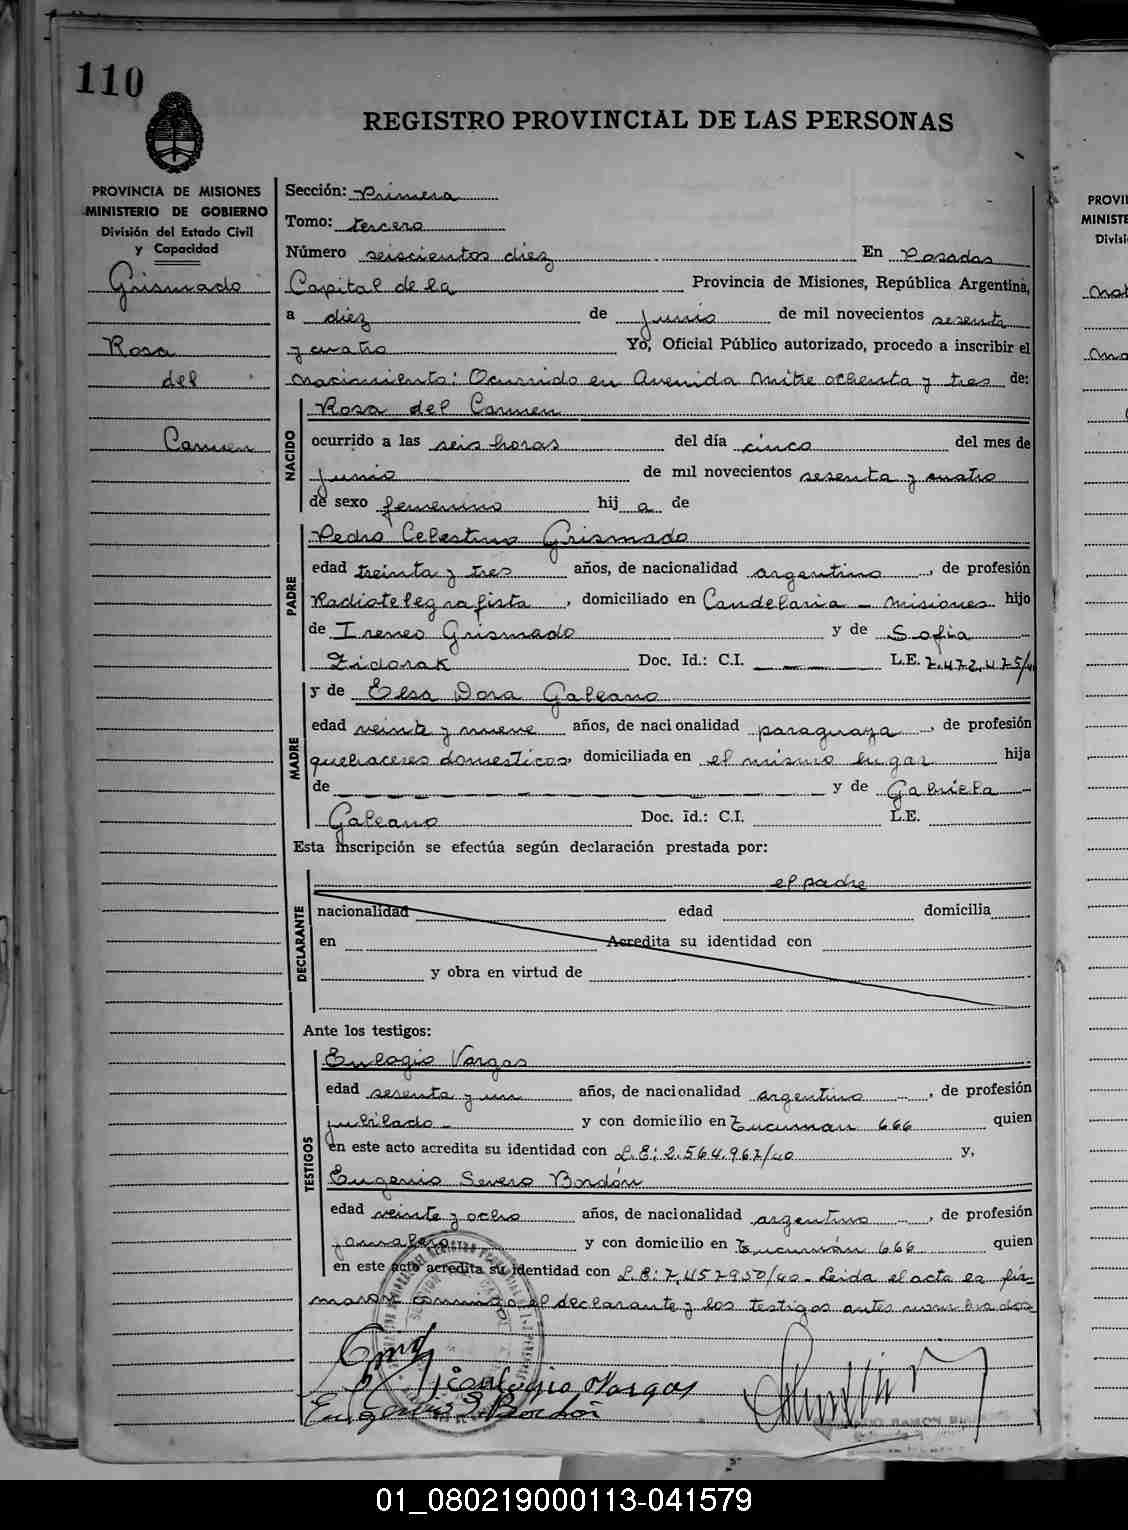 110
REGISTRO PROVINCIAL DE LAS PERSONAS
PROVINCIA DE MISIONES
MINISTERIO DE GOBIERNO
División del Estado Civil
y Capacidad
Grismado
Rosa
del
Carmen
Sección: Primera
Tomo: tercero
Número seiscientos diez En Posadas
Capital de la Provincia de Misiones, República Argentina,
a diez de junio de mil novecientos sesenta
y cuatro Yo, Oficial Público autorizado, procedo a inscribir el
nacimiento: Ocurrido en Avenida Mitre ochenta y tres de:
NACIDO
Rosa del Carmen
ocurrido a las seis horas del día cinco del mes de
junio de mil novecientos sesenta y cuatro
de sexo femenino hij a de
PADRE
Pedro Celestino Grismado
edad treinta y tres años, de nacionalidad argentino, de profesión
Radiotelegrafista, domiciliado en Candelaria - Misiones hijo
de Ireneo Grismado y de Sofia
Zidorak Doc. Id.: C.I. L.E. 7.472.475/4
MADRE
y de Elsa Dora Galeano
edad veinte y nueve años, de nacionalidad paraguaya, de profesión
quehaceres domesticos, domiciliada en el mismo lugar hija
de y de Gabriela
Galeano Doc. id.: C.I. L.E.
Esta inscripción se efectúa según declaración prestada por:
DECLARANTE
el padre
nacionalidad edad domicilia
en Acredita su identidad con
y obra en virtud de
Ante los testigos:
TESTIGOS
Eulogio Vargas
edad sesenta y un años, de nacionalidad argentino, de profesión
jubilado y con domicilio en Tucuman 666 quien
en este acto acredita su identidad con L.E: 2.564.967/40 y,
Eugenio Severo Bordón
edad veinte y ocho años, de nacionalidad argentino, de profesión
jornalero y con domicilio en Tucumán 666 quien
en este acto acredita su identidad con L.E: 7.457950/40 - Leida el acta la fir-
maron conmigo el declarante y los testigos antes nombrados
Eulogio Vargas
Eugenio S. Bordón
PROVI
MINISTE
Divisi
01_080219000113-041579